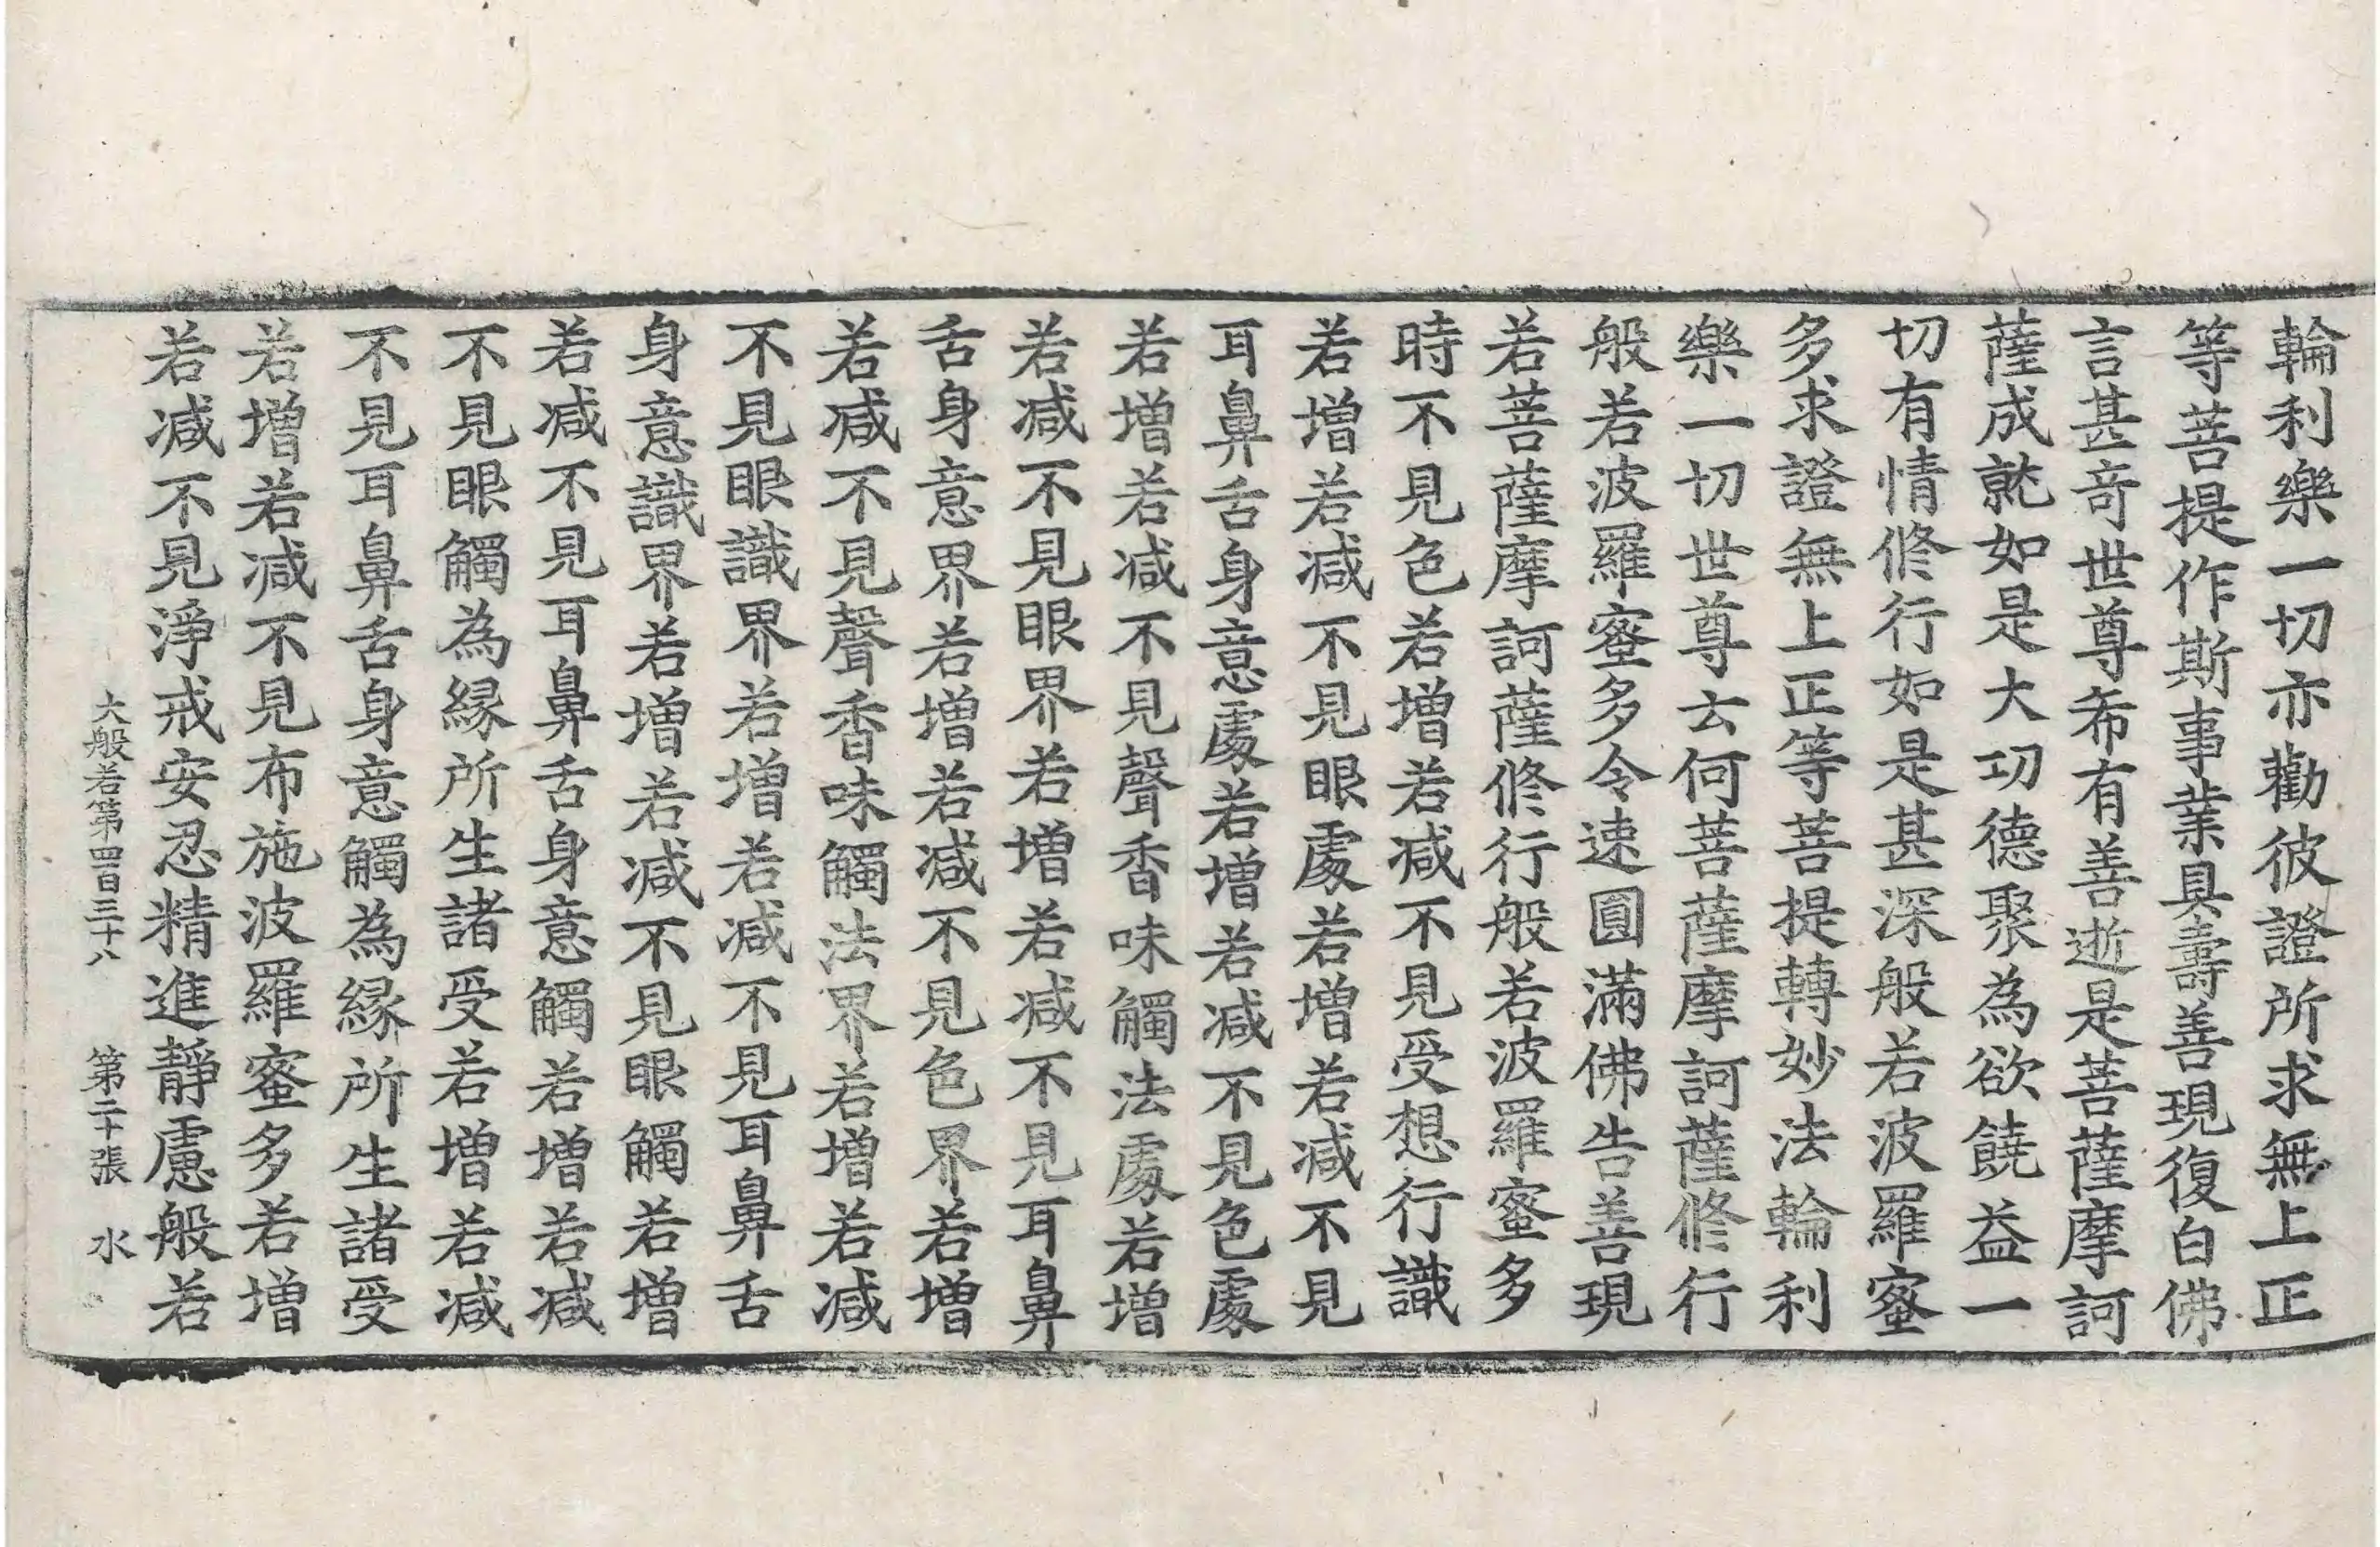 輪利樂一切亦勸彼證所求無上正
等菩提作斯事業具壽善現復白佛
言甚奇世尊希有善逝是菩薩摩訶
薩成就如是大功德聚為欲饒益一
切有情修行如是甚深般若波羅蜜
多求證無上正等菩提轉妙法輪利
樂一切世尊云何菩薩摩訶薩修行
般若波羅蜜多令速圓滿佛告善現
若菩薩摩訶薩修行般若波羅蜜多
時不見色若增若减不見受想行識
若增若减不見眼處若增若减不見
耳鼻舌身意處若增若减不見色處
若增若减不見聲香味觸法處若增
若减不見眼界若增若减不見耳鼻
舌身意界若增若减不見色界若增
若减不見聲香味觸法界若增若减
不見眼識界若增若减不見耳鼻舌
身意識界若增若减不見眼觸若增
若减不見耳鼻舌身意觸若增若减
不見眼觸為縁所生諸受若增若减
不見耳鼻舌身意觸為縁所生諸受
若增若减不見布施波羅蜜多若增
若减不見淨戒安忍精進靜慮般若
大般若第四百三十八 第二十張 水